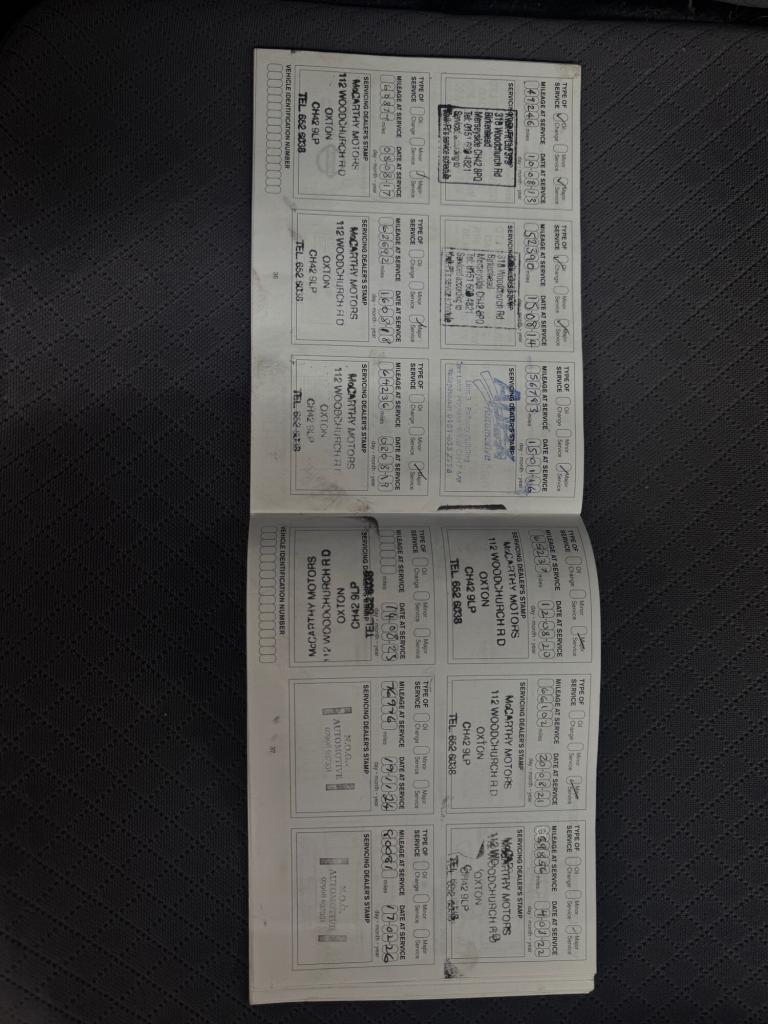 TYPE OF SERVICE
Oil Change
Minor Service
Major Service
MILEAGE AT SERVICE
DATE AT SERVICE
47246 miles
10 08 13
day - month - year
318 Woodchurch Rd
Birkenhead
Merseyside CH42 8PD
Tel: 0151 609 4821
Service according to
TYPE OF SERVICE
Oil Change
Minor Service
Major Service
MILEAGE AT SERVICE
DATE AT SERVICE
52390 miles
15 08 14
day - month - year
318 Woodchurch Rd
Birkenhead
Merseyside CH42 8PD
Tel: 0151 609 4821
Service according to
TYPE OF SERVICE
Oil Change
Minor Service
Major Service
MILEAGE AT SERVICE
DATE AT SERVICE
56793 miles
15 01 16
day - month - year
SERVICING DEALER'S STAMP
TYPE OF SERVICE
Oil Change
Minor Service
Major Service
MILEAGE AT SERVICE
DATE AT SERVICE
miles
08 08 17
day - month - year
SERVICING DEALER'S STAMP
McCARTHY MOTORS
112 WOODCHURCH RD
OXTON
CH42 9LP
TEL. 652 6038
TYPE OF SERVICE
Oil Change
Minor Service
Major Service
MILEAGE AT SERVICE
DATE AT SERVICE
62692 miles
16 08 18
day - month - year
SERVICING DEALER'S STAMP
McCARTHY MOTORS
112 WOODCHURCH RD
OXTON
CH42 9LP
TEL. 652 6038
TYPE OF SERVICE
Oil Change
Minor Service
Major Service
MILEAGE AT SERVICE
DATE AT SERVICE
64236 miles
02 08 19
day - month - year
SERVICING DEALER'S STAMP
McCARTHY MOTORS
112 WOODCHURCH RD
OXTON
CH42 9LP
TEL. 652 6038
VEHICLE IDENTIFICATION NUMBER
36
TYPE OF SERVICE
Oil Change
Minor Service
MILEAGE AT SERVICE
DATE AT SERVICE
65237 miles
12 08 20
day - month - year
SERVICING DEALER'S STAMP
McCARTHY MOTORS
112 WOODCHURCH RD
OXTON
CH42 9LP
TEL. 652 6038
TYPE OF SERVICE
Oil Change
Minor Service
Service
MILEAGE AT SERVICE
DATE AT SERVICE
66102 miles
20 08 21
day - month - year
SERVICING DEALER'S STAMP
McCARTHY MOTORS
112 WOODCHURCH RD
OXTON
CH42 9LP
TEL. 652 6038
TYPE OF SERVICE
Oil Change
Minor Service
Major Service
MILEAGE AT SERVICE
DATE AT SERVICE
miles
day - month - year
SERVICING DEALER'S STAMP
McCARTHY MOTORS
112 WOODCHURCH RD
OXTON
CH42 9LP
TEL. 652 6038
TYPE OF SERVICE
Oil Change
Minor Service
Major Service
MILEAGE AT SERVICE
DATE AT SERVICE
miles
14 08 23
day - month - year
McCARTHY MOTORS
112 WOODCHURCH RD
OXTON
CH42 9LP
TEL. 652 6038
TYPE OF SERVICE
Oil Change
Minor Service
Major Service
MILEAGE AT SERVICE
DATE AT SERVICE
76976 miles
19 11 24
day - month - year
SERVICING DEALER'S STAMP
AUTOMOTIVE
TYPE OF SERVICE
Oil Change
Minor Service
Major Service
MILEAGE AT SERVICE
DATE AT SERVICE
80031 miles
17 02 26
day - month - year
SERVICING DEALER'S STAMP
AUTOMOTIVE
VEHICLE IDENTIFICATION NUMBER
37